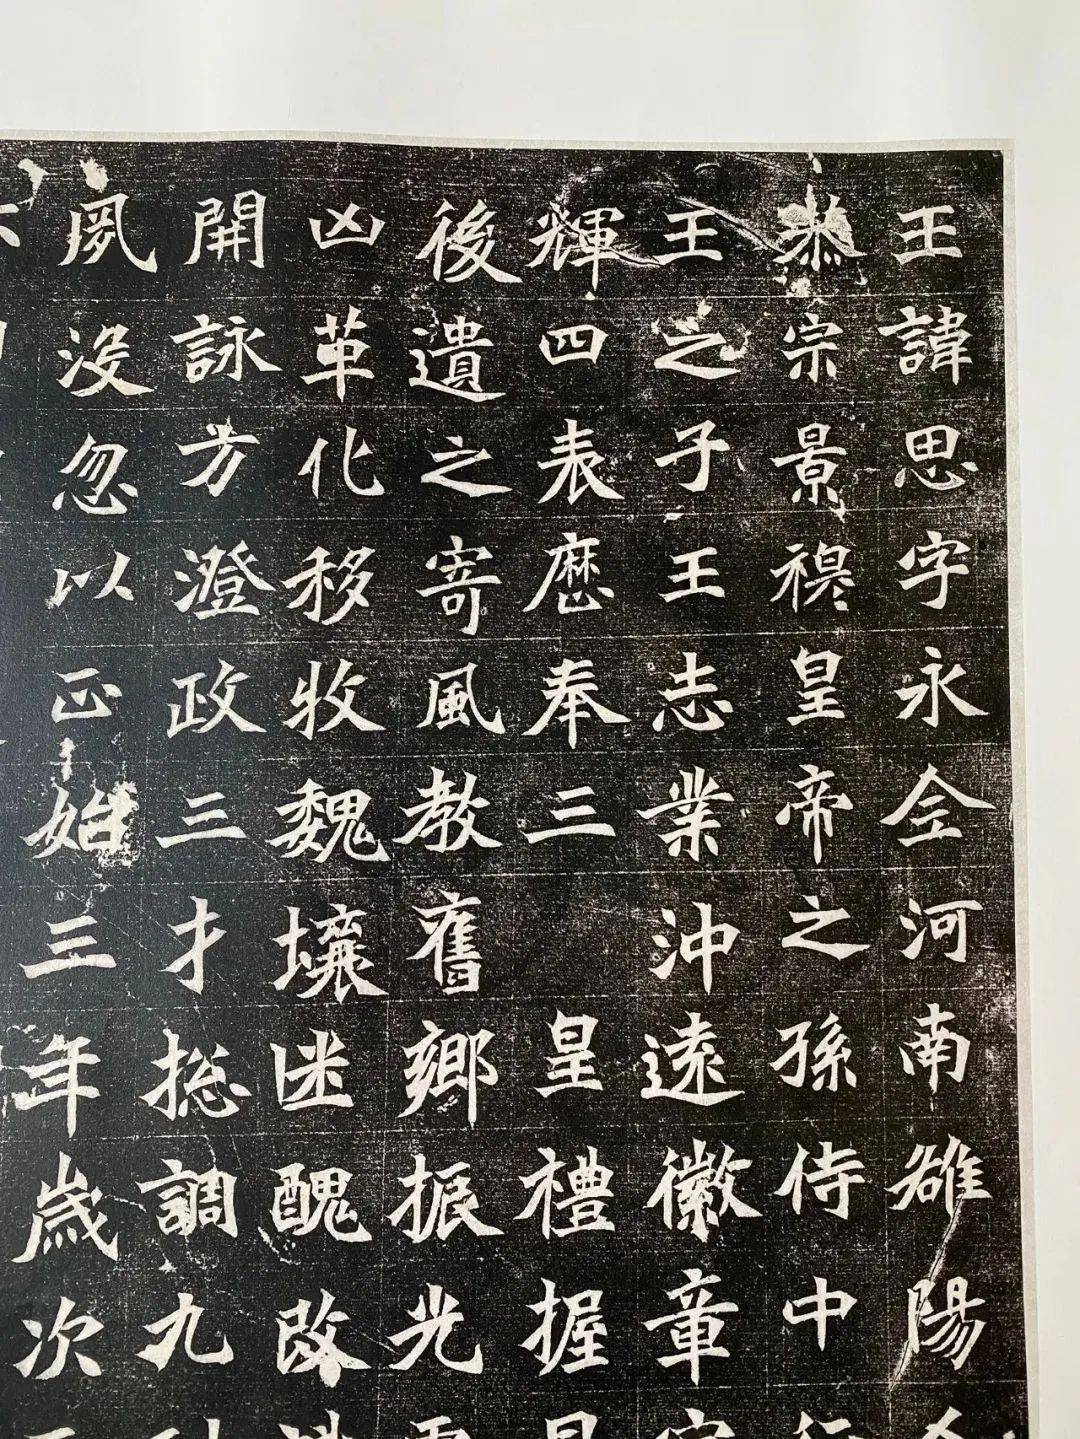 王諱思字永仝河南雒陽
恭宗景穆皇帝之孫侍中
王之子王志業沖遠徽章
輝四表慿奉三皇禮握
後遺之寄風教舊鄉振光
凶革化移收魏壤迷醜改
開詠方澄政三才摠調九
夙没忽以正始三年歲次